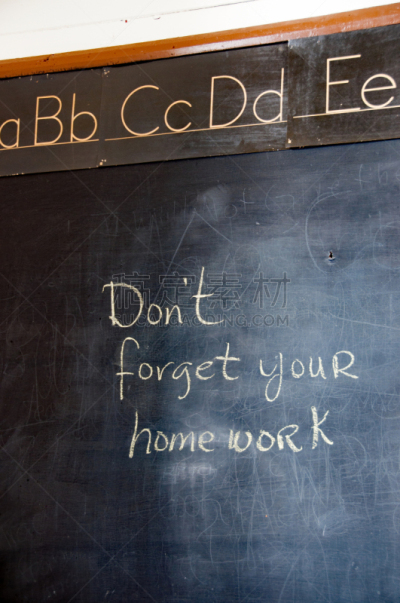 a Bb Cc Dd Ee
Don't
forget your
homework
搞定素材
GAODING.COM